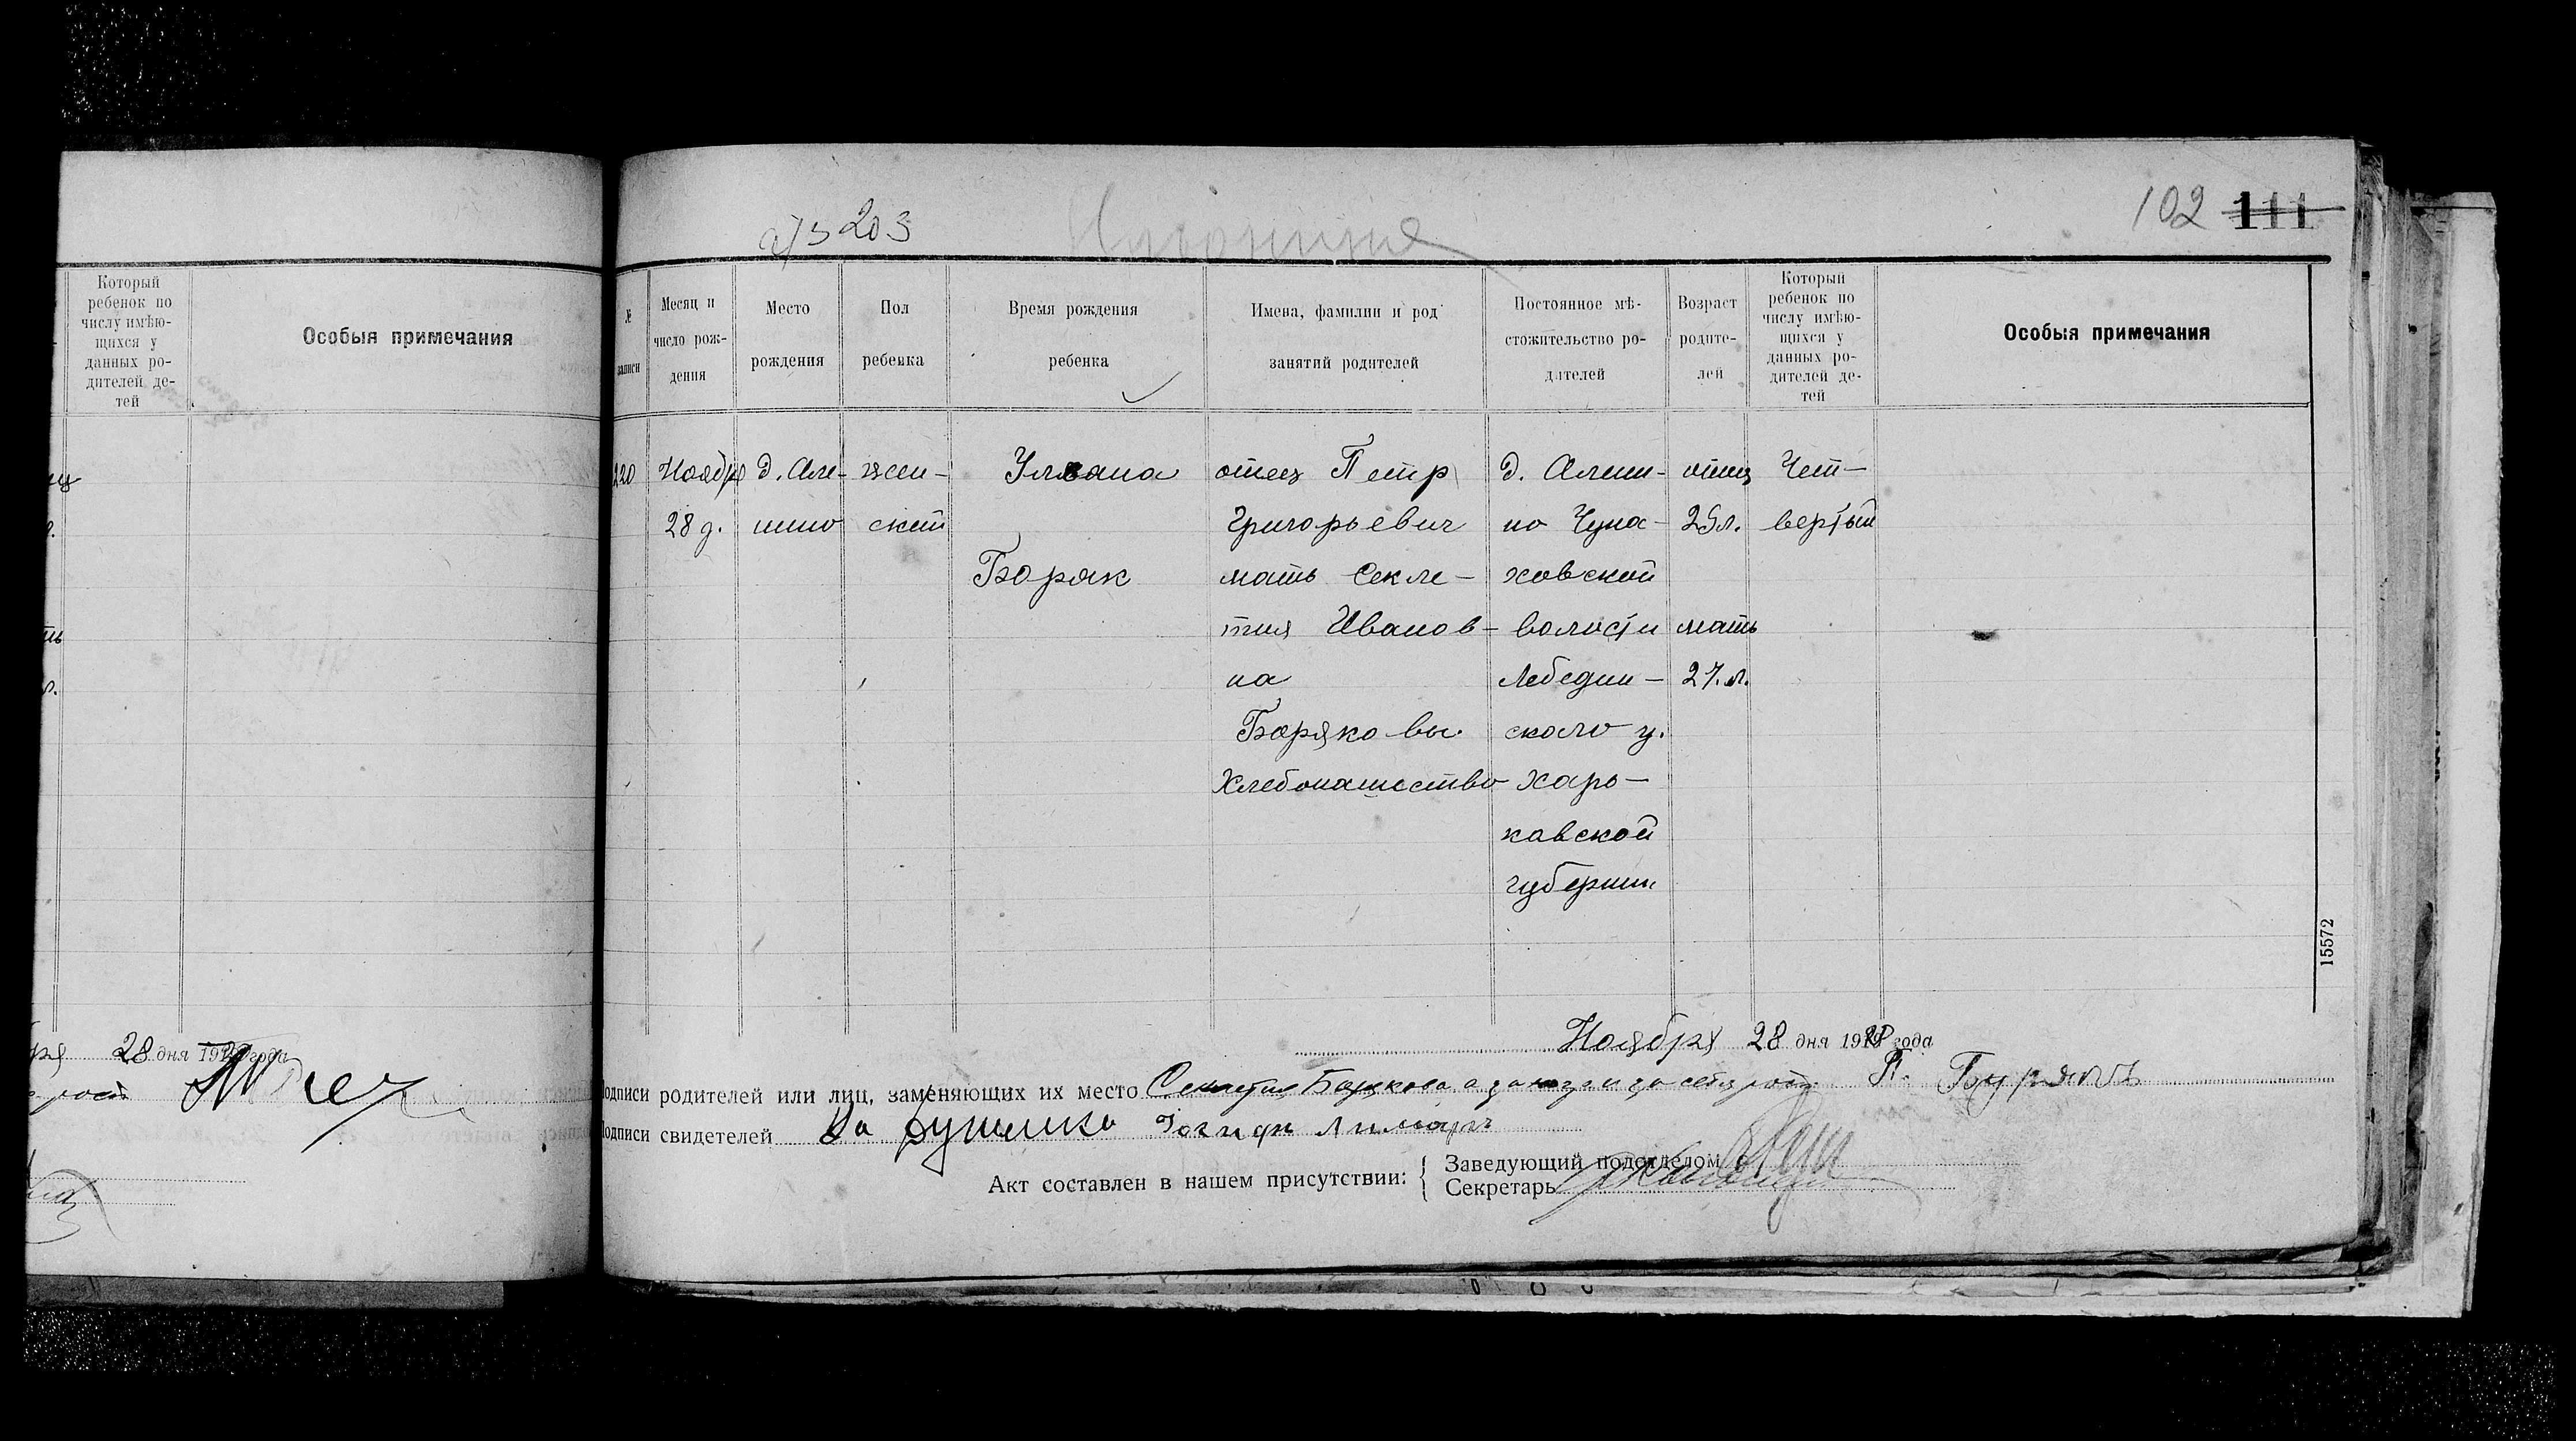 203
102 111
Который
ребенок по
числу имѣю-
щихся у
данных ро-
дителей де-
тей
Особыя примечания
28 дня
№
записи
Месяц и
число рож-
дения
Место
рождения
Пол
ребенка
Время рождения
ребенка
Имена, фамилии и род
занятий родителей
Постоянное мѣ-
стожительство ро-
дителей
Возраст
родите-
лей
Который
ребенок по
числу имѣю-
щихся у
данных ро-
дителей де-
тей
Особыя примечания
220
Ноября
28 д.
д. Але-
шино
жен-
ский
Ульяна
Боряк
отец Петр
Григорьевич
мать Секле-
тия Иванов-
на
Боряковы.
Хлебопашество
д. Алеши-
но Чупа-
ховской
волости
Лебедин-
ского у.
Харь-
ковской
губернии
отец
25 л.
мать
27 л.
Чет-
вертый
15572
Ноября 28 дня года
Подписи родителей или лиц, заменяющих их место
Подписи свидетелей
Акт составлен в нашем присутствии:
Заведующий подотделом
Секретарь